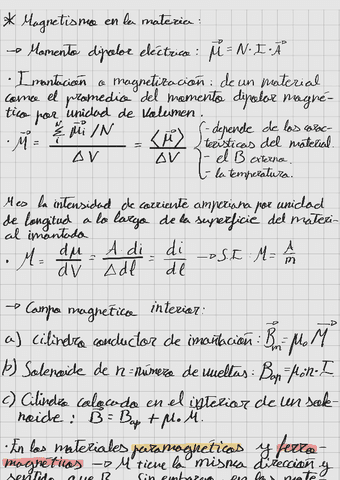 * Magnetismo en la materia:
→ Momento dipolar eléctrico: μ⃗ = N · I · A⃗
· Imantación o magnetización: de un material
como el promedio del momento dipolar magné-
tico por unidad de volumen.
· M⃗ = (Σ^N_i μ⃗i / N) / ΔV = ⟨μ⃗⟩ / ΔV { - depende de las carac-
terísticas del material.
- el B externo.
- la temperatura.
M es la intensidad de corriente amperiana por unidad
de longitud a lo largo de la superficie del materi-
al imantado
· M = dμ/dV = A di / A dl = di/dl → S.I: M = A/m
→ Campo magnético interior:
a) cilindro conductor de imantación: B⃗m = μ₀ M⃗
b) Solenoide de n = número de vueltas: Bap = μ₀ · n · I
c) Cilindro colocado en el interior de un sole-
noide: B⃗ = Bap + μ₀ M.
· En los materiales paramagnéticos y ferro-
magnéticos → M tiene la misma dirección y
sentido que B. Sin embargo en los mate